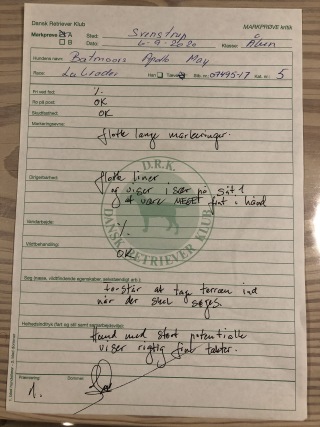 Dansk Retriever Klub
MARKPRØVE kritik
Markprøve A Sted: Svenstrup
B Dato: 6-9-2020 Klasse: Åben
Hundens navn: Batmoors Apollo May
Race: Labrador Han Tæve Stb. nr.: 07495-17 Kat. nr.: 5
Fri ved fod: %
Ro på post: OK
Skudfasthed: OK
Markeringsevne:
flotte lange markeringer.
Dirigerbarhed:
flotte liner
og viser især på såt 1
at være MEGET fint i hånd
D.R.K.
DANSK RETRIEVER KLUB
Vandarbejde:
%
Vildtbehandling:
OK
Søg (næse, vildtfindende egenskaber, selvstændigt arb.):
forstår at tage terræn ind
når der skal søges.
Helhedsindtryk (fart og stil samt samarbejdsvilje):
Hund med stort potentiale
viser rigtig fine takter.
Præmiering: Dommer:
1.